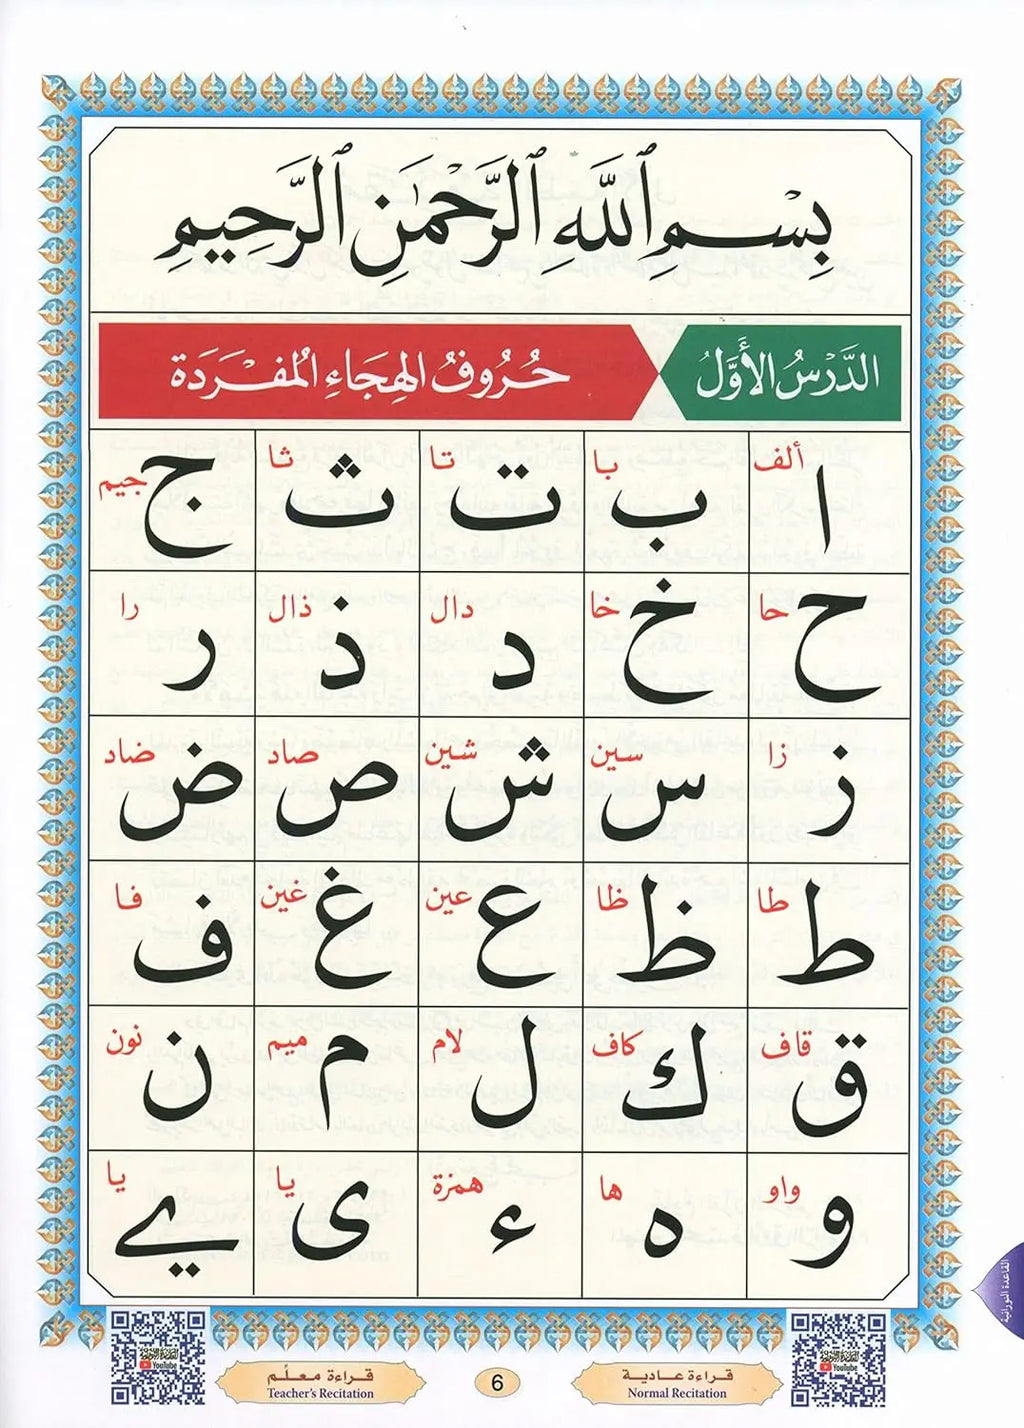 بِسْمِ ٱللَّهِ ٱلرَّحْمَٰنِ ٱلرَّحِيمِ
الدَّرْسُ الأَوَّلُ حُرُوفُ الهِجَاءِ المُفْرَدَة
ألف با تا ثا جيم
ا ب ت ث ج
حا خا دال ذال را
ح خ د ذ ر
زا سين شين صاد ضاد
ز س ش ص ض
طا ظا عين غين فا
ط ظ ع غ ف
قاف كاف لام ميم نون
ق ك ل م ن
واو ها همزة يا يا
و ه ء ى ے
القاعدة النورانية
YouTube
YouTube
قراءة عادية
Normal Recitation
6
قراءة معلّم
Teacher's Recitation